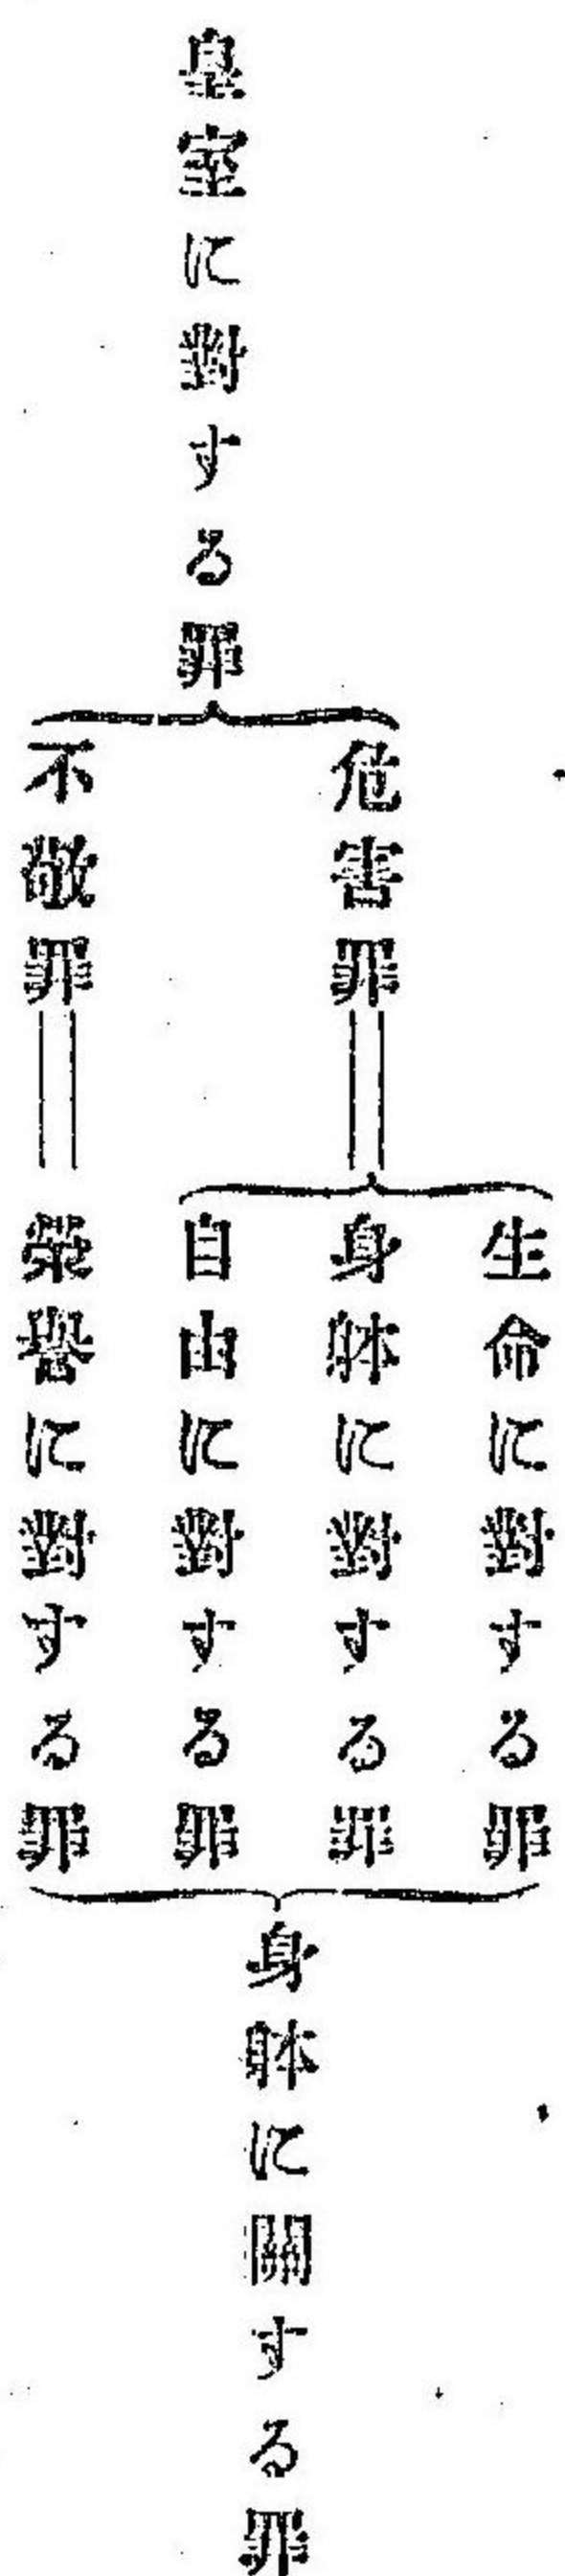 皇室に對する罪
危害罪
不敬罪
生命に對する罪
身躰に對する罪
自由に對する罪
榮譽に對する罪
身躰に關する罪